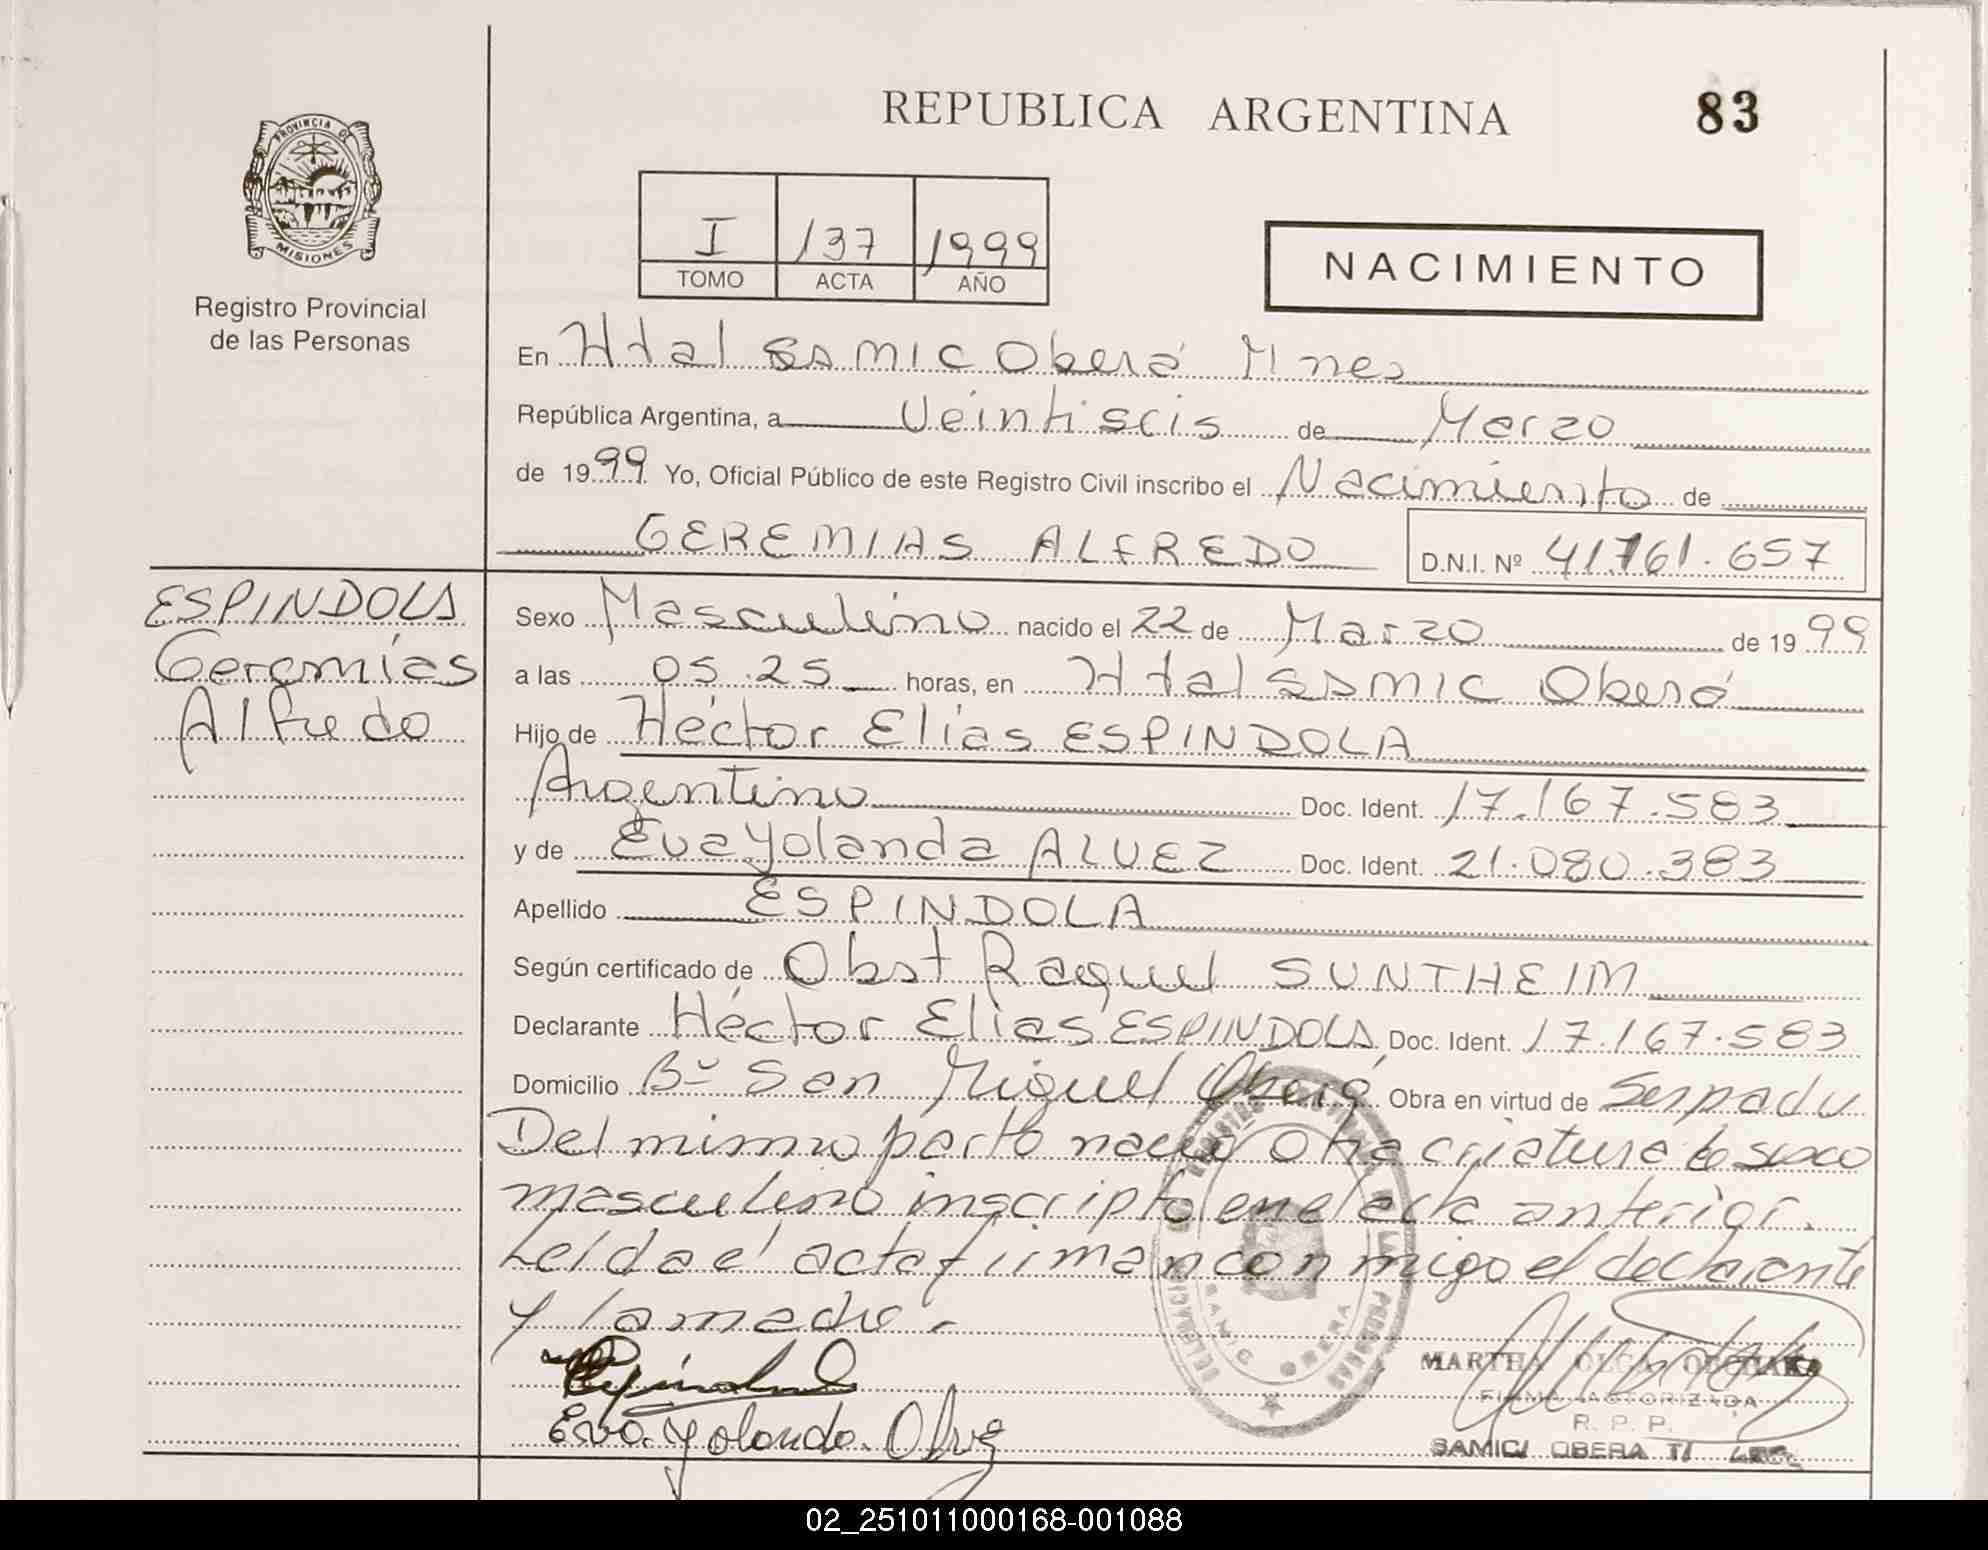 REPUBLICA ARGENTINA
83
PROVINCIA DE
MISIONES
Registro Provincial
de las Personas
I 137 1999
TOMO ACTA AÑO
NACIMIENTO
En Htal SAMIC Oberá Mnes
República Argentina, a Veintiseis de Marzo
de 1999 Yo, Oficial Público de este Registro Civil inscribo el Nacimiento de
GEREMIAS ALFREDO D.N.I. Nº 41.761.657
ESPINDOLA
Geremías
Alfredo
Sexo Masculino nacido el 22 de Marzo de 1999
a las 05.25 horas, en Htal SAMIC Oberá
Hijo de Héctor Elías ESPINDOLA
Argentino Doc. Ident. 17.167.583
y de Eva Yolanda ALVEZ Doc. Ident. 21.080.383
Apellido ESPINDOLA
Según certificado de Obst Raquel SUNTHEIM
Declarante Héctor Elías ESPINDOLA Doc. Ident. 17.167.583
Domicilio Bº San Miguel Oberá Obra en virtud de Ser padre
Del mismo parto nació otra criatura de sexo
masculino inscripto en el acta anterior.
Leída el acta firman conmigo el declarante
y la madre.
Espindola
Eva Yolanda Alvez
MARTHA OLGA
FIRMA AUTORIZADA
R. P. P.
SAMIC OBERA
SAMIC OBERA
02_251011000168-001088